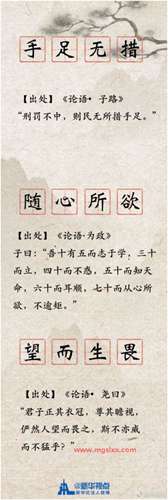 手足无措
【出处】《论语• 子路》
“刑罚不中，则民无所措手足。”
随心所欲
【出处】《论语·为政》
子曰：“吾十有五而志于学，三十
而立，四十而不惑，五十而知天
命，六十而耳顺，七十而从心所
欲，不逾矩。”
望而生畏
【出处】《论语• 尧曰》
“君子正其衣冠，尊其瞻视，
俨然人望而畏之，斯不亦威
而不猛乎？”
www.mgslxx.com
@新华视点
新华社法人微博